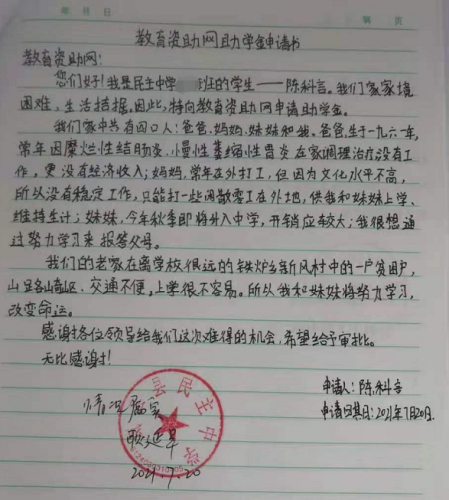 教育资助网助学金申请书
教育资助网：
您们好！我是民主中学 班的学生——陈科言。我们家家境
困难，生活拮据。因此，特向教育资助网申请助学金。
我们家中共有四口人：爸爸、妈妈、妹妹和我。爸爸，生于一九六一年，
常年因糜烂性结肠炎、慢性萎缩性胃炎在家调理治疗没有工
作，更没有经济收入；妈妈，常年在外打工，但因为文化水平不高，
所以没有稳定工作，只能打一些闲散零工在外地，供我和妹妹上学、
维持生计；妹妹，今年秋季即将升入中学，开销应较大；我很想通
过努力学习来报答父母。
我们的老家在离学校很远的铁炉乡新风村中的一户贫困户，
山足各山区、交通不便，上学很不容易。所以我和妹妹将努力学习，
改变命运。
感谢各位领导给我们这次难得的机会，希望给予审批。
无比感谢！
申请人：陈科言
申请日期：2021年7月20日.
情况属实
2021.7.20
县民主中学